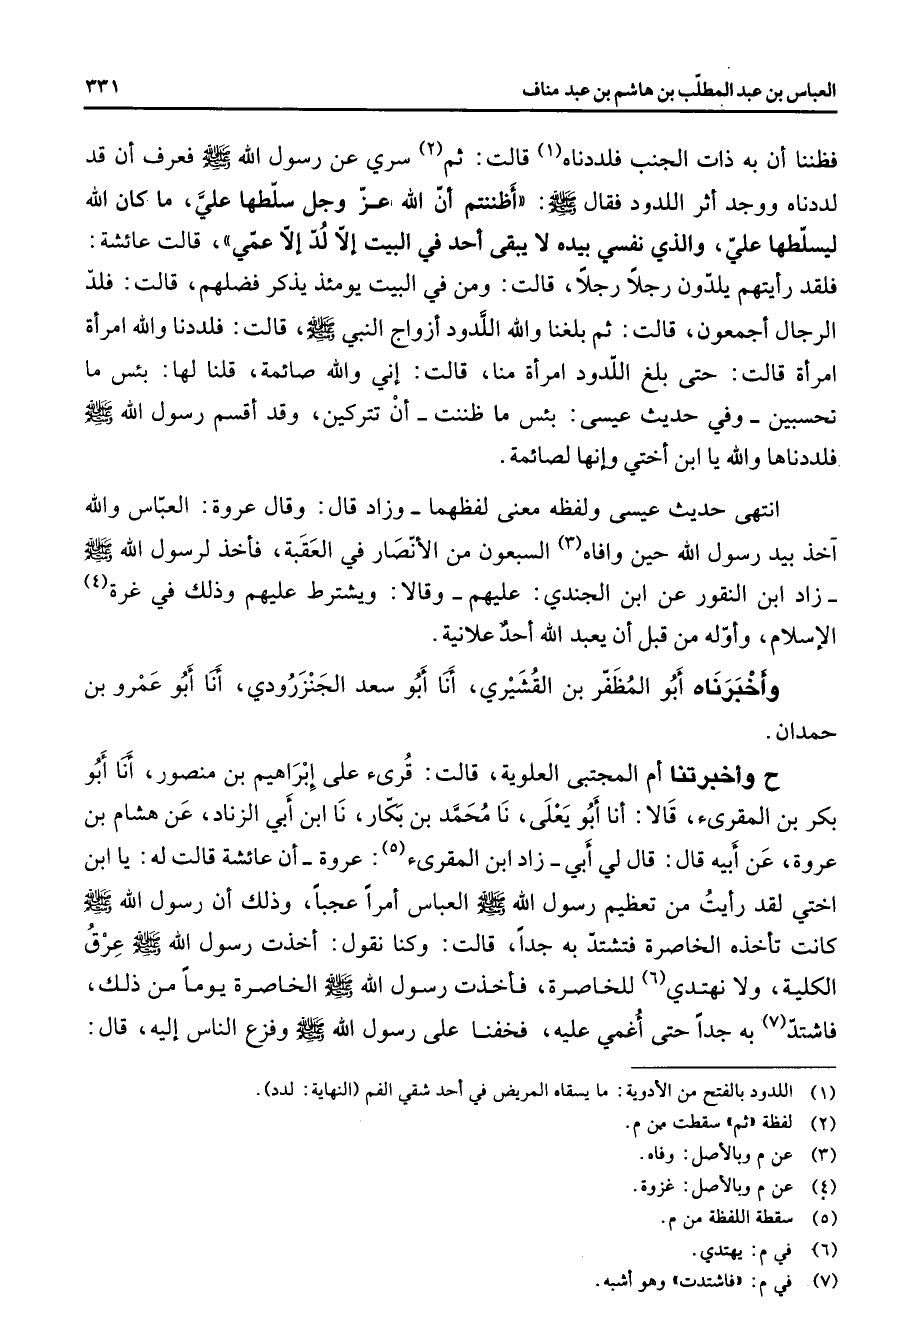 العباس بن عبد المطلّب بن هاشم بن عبد مناف ٣٣١
فظننا أن به ذات الجنب فلددناه(١) قالت: ثم(٢) سري عن رسول الله ﷺ فعرف أن قد
لددناه ووجد أثر اللدود فقال ﷺ: «أظننتم أنّ الله عزّ وجل سلّطها عليَّ، ما كان الله
ليسلّطها عليّ، والذي نفسي بيده لا يبقى أحد في البيت إلاّ لُدّ إلاّ عمّي»، قالت عائشة:
فلقد رأيتهم يلدّون رجلاً رجلاً، قالت: ومن في البيت يومئذ يذكر فضلهم، قالت: فلدّ
الرجال أجمعون، قالت: ثم بلغنا والله اللَّدود أزواج النبي ﷺ، قالت: فلددنا والله امرأة
امرأة قالت: حتى بلغ اللّدود امرأة منا، قالت: إني والله صائمة، قلنا لها: بئس ما
تحسبين ـ وفي حديث عيسى: بئس ما ظننت ـ أنْ تتركين، وقد أقسم رسول الله ﷺ
فلددناها والله يا ابن أختي وإنها لصائمة.
انتهى حديث عيسى ولفظه معنى لفظهما ـ وزاد قال: وقال عروة: العبّاس والله
آخذ بيد رسول الله حين وافاه(٣) السبعون من الأنْصَار في العَقَبة، فأخذ لرسول الله ﷺ
ـ زاد ابن النقور عن ابن الجندي: عليهم ـ وقالا: ويشترط عليهم وذلك في غرة(٤)
الإسلام، وأوّله من قبل أن يعبد الله أحدٌ علانية.
وأَخْبَرَنَاه أَبُو المُظَفّر بن القُشَيْري، أَنَا أَبُو سعد الجَنْزَرُودي، أَنَا أَبُو عَمْرو بن
حمدان.
ح وأخبرتنا أم المجتبى العلوية، قالت: قُرىء على إبْرَاهيم بن منصور، أَنَا أَبُو
بكر بن المقرىء، قَالا: أنا أَبُو يَعْلَى، نَا مُحَمَّد بن بكّار، نَا ابن أَبي الزناد، عَن هشام بن
عروة، عَن أَبيه قال: قال لي أَبي ـ زاد ابن المقرىء(٥): عروة ـ أن عائشة قالت له: يا ابن
اختي لقد رأيتُ من تعظيم رسول الله ﷺ العباس أمراً عجباً، وذلك أن رسول الله ﷺ
كانت تأخذه الخاصرة فتشتدّ به جداً، قالت: وكنا نقول: أخذت رسول الله ﷺ عِرْقُ
الكلية، ولا نهتدي(٦) للخاصرة، فأخذت رسول الله ﷺ الخاصرة يوماً من ذلك،
فاشتدّ(٧) به جداً حتى أُغمي عليه، فخفنا على رسول الله ﷺ وفزع الناس إليه، قال:
(١) اللدود بالفتح من الأدوية: ما يسقاه المريض في أحد شقي الفم (النهاية: لدد).
(٢) لفظة «ثم» سقطت من م.
(٣) عن م وبالأصل: وفاه.
(٤) عن م وبالأصل: غزوة.
(٥) سقطة اللفظة من م.
(٦) في م: يهتدي.
(٧) في م: «فاشتدت» وهو أشبه.